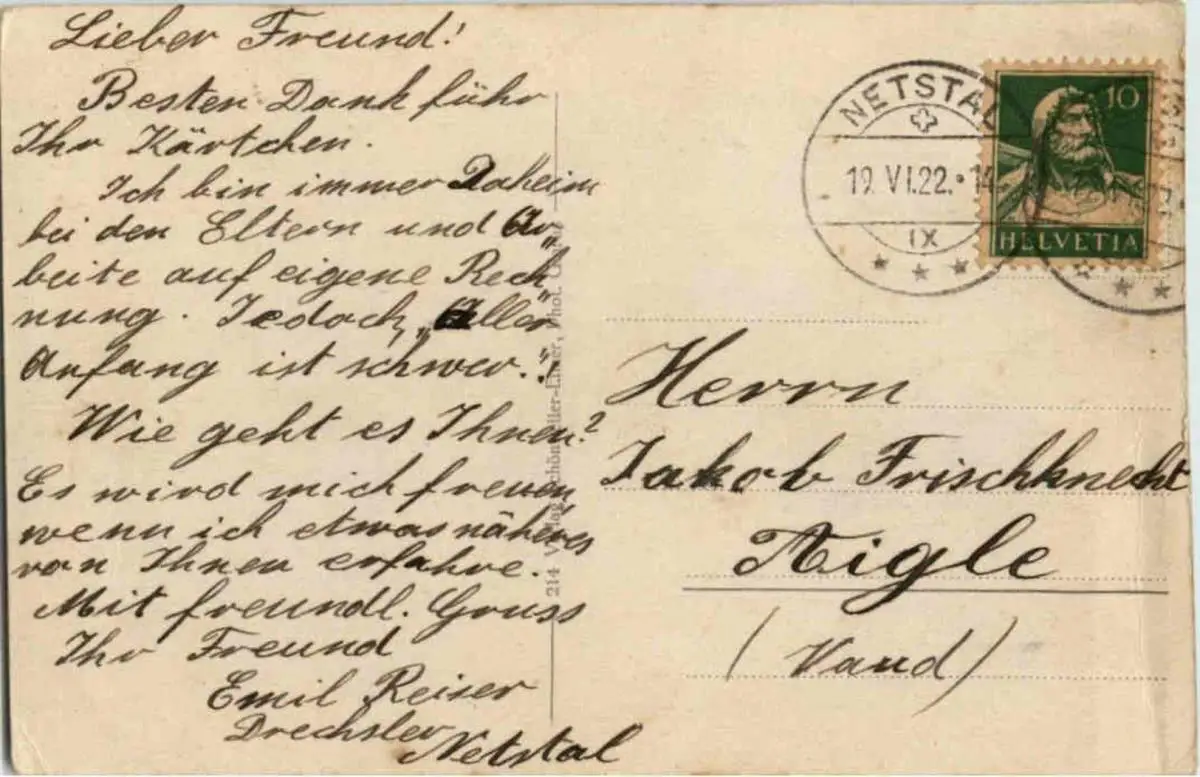 Lieber Freund!
Besten Dank führ
Ihr Kärtchen.
Ich bin immer Daheim
bei den Eltern und Ar„
beite auf eigene Rech„
nung. Jedoch „Aller
Anfang ist schwer.“!
Wie geht es Ihnen?
Es wird mich freuen
wenn ich etwas näheres
von Ihnen erfahre.
Mit freundl. Gruss
Ihr Freund
Emil Reiser
Drechsler
Netstal
214
NETSTAL
19. VI. 22.
IX
10
HELVETIA
Herrn
Jakob Frischknecht
Aigle
(Vaud)